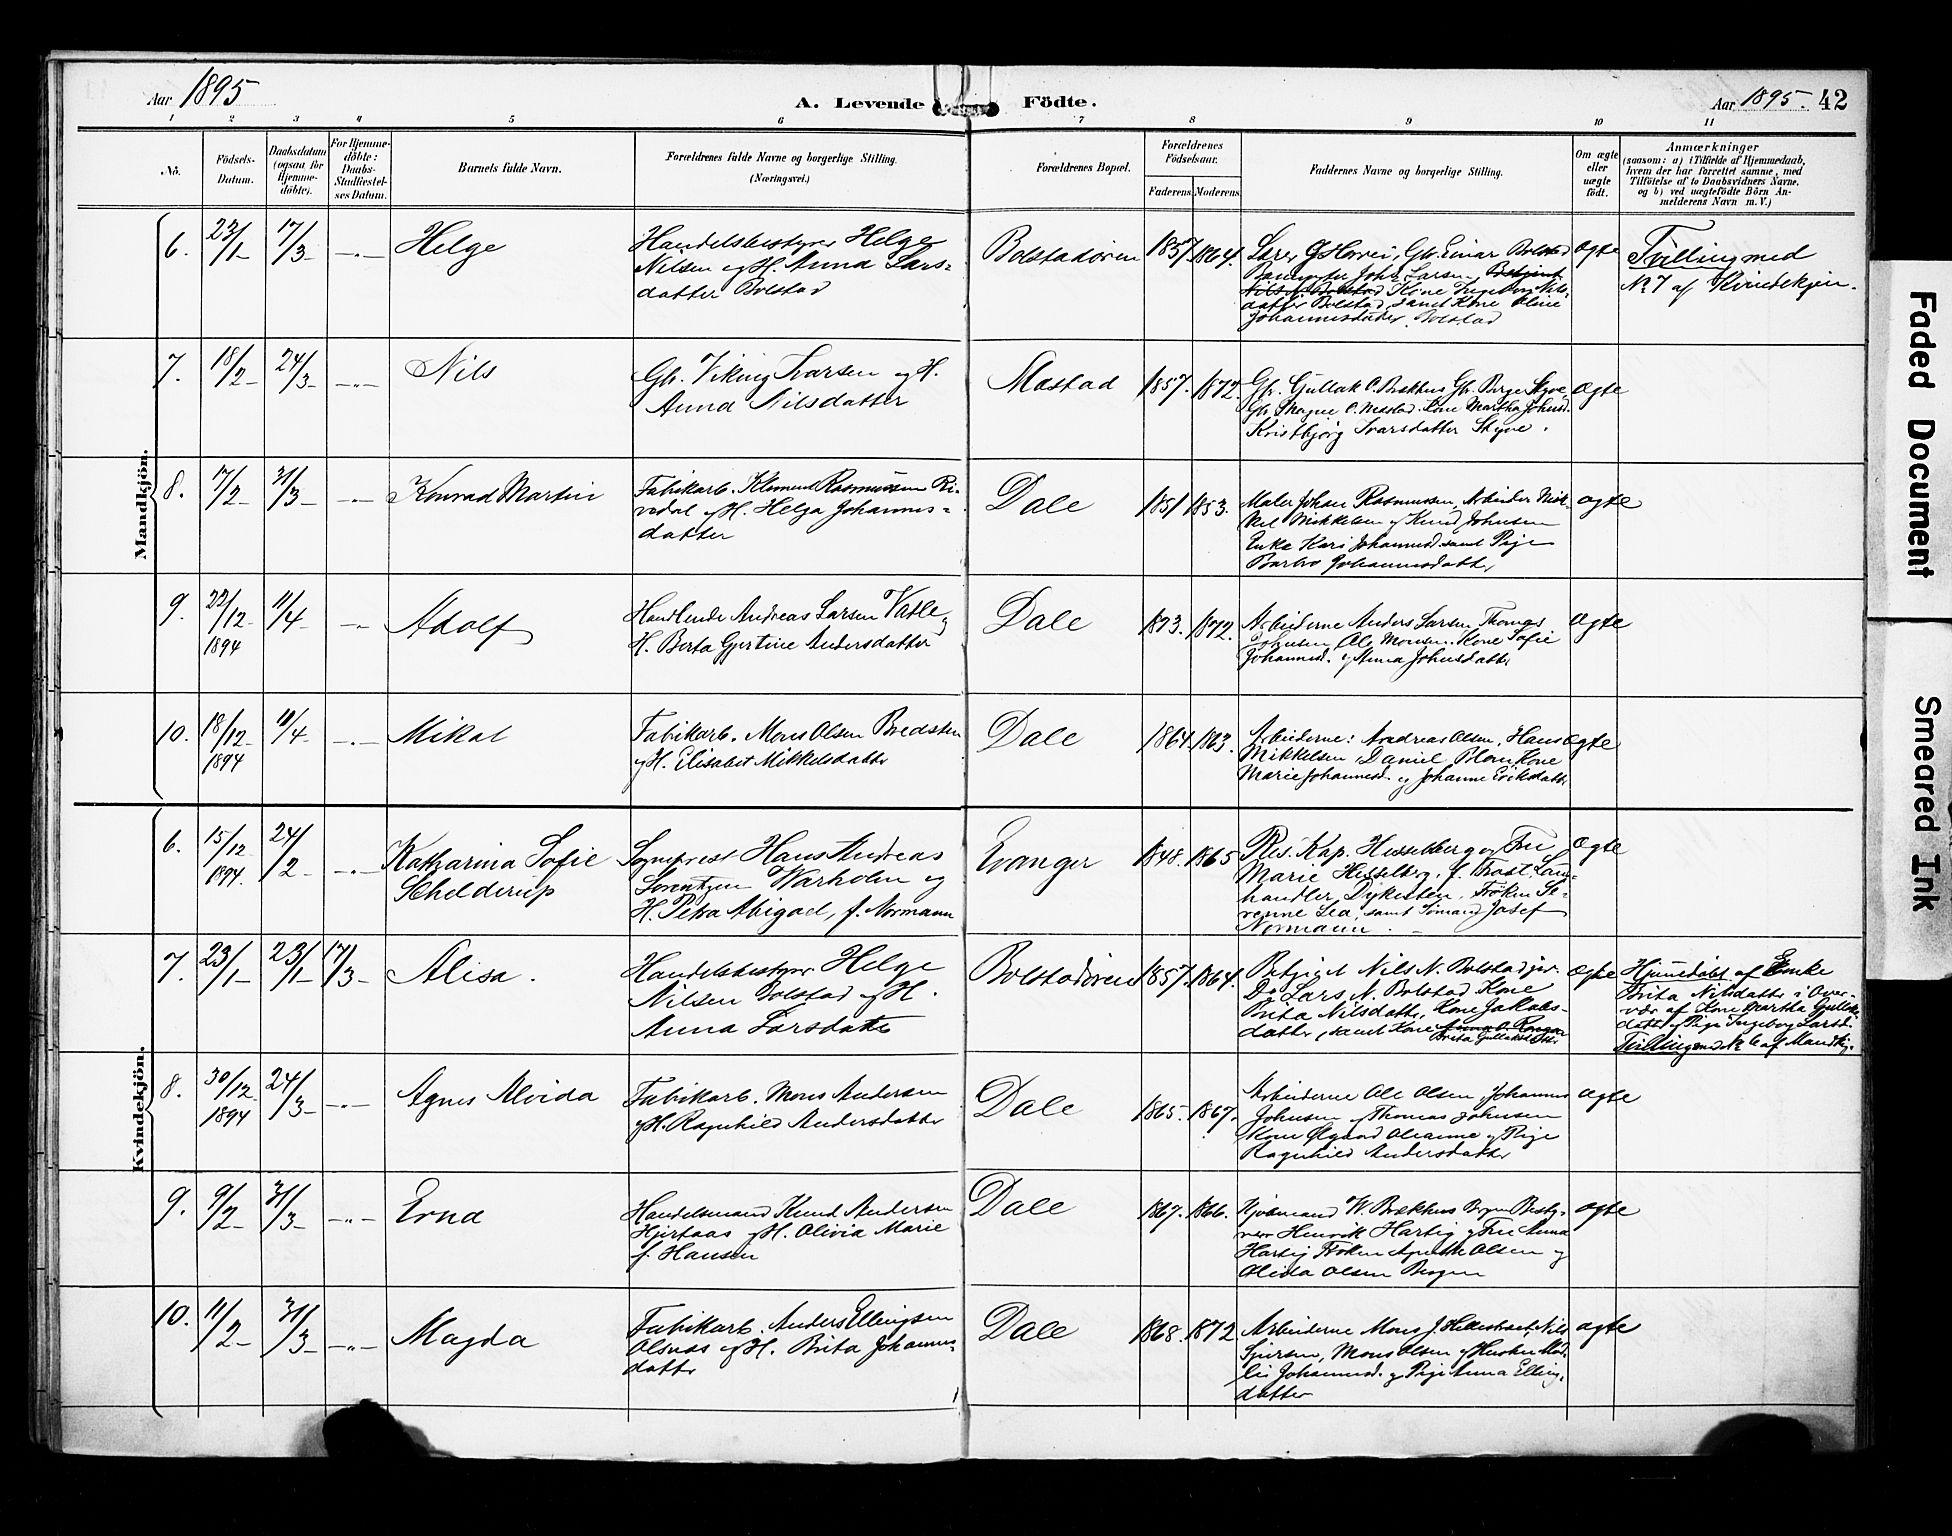 Aar 1895
A. Levende Födte.
Aar 1895. 42
1 2 3 4 5 6 7 8 9 10 11
No.
Födsels-Datum.
Daabsdatum (ogsaa for Hjemme-döbte).
For Hjemme-döbte: Daabs-Stadfæstel-ses Datum.
Barnets fulde Navn.
Forældrenes fulde Navne og borgerlige Stilling.
(Næringsvei.)
Forældrenes Bopæl.
Forældrenes Födselsaar.
Faderens. Moderens.
Faddernes Navne og borgerlige Stilling.
Om ægte eller uægte födt.
Anmærkninger
(saasom: a) i Tilfælde af Hjemmedaab,
hvem der har forrettet samme, med
Tilföielse af to Daabsvidners Navne,
og b) ved uægtefödte Börn An-
melderens Navn m. V.)
Mandkjön.
6. 23/1 17/3 -"- Helge
Handelsbestyrer Helge
Nilsen og H. Anna Lars-
datter Bolstad
Bolstadören 1857. 1864.
Johannesdatter Bolstad
ægte
Tvilling med
No 7 af Kvindekjön.
7. 18/2 24/3 -"- Nils
Gbr. Viking Ivarsen og H.
Anna Nilsdatter
Mæstad 1857. 1872.
Kristbjörg Ivarsdatter Skyve.
ægte
8. 17/2 31/3 -"- Konrad Martin
Fabrikarb. Klement Rasmussen Ri-
vedal og H. Helga Johannes-
datter
Dale 1851 1853.
Maler Johan Rasmussen, Arbeider Mik-
kel Mikkelsen og Knud Johnsen
Enke Kari Johannesd. samt Pige
Barbro Johannesdatter
ægte
9. 22/12 1894 11/4 -"- Adolf
Handlende Andreas Larsen Vatle og
H. Berta Gjertine Andersdatter
Dale 1873. 1872.
Arbeiderne Anders Larsen Thomas
Johnsen Ole Monsen. Kone Sofie
Johannesd. og Anna Johnsdatter
ægte
10. 18/12 1894 11/4 -"- Mikal
Fabrikarb. Mons Olsen Bredsten
og H. Elisabet Mikkelsdatter
Dale 1864. 1863.
Arbeiderne: Andreas Olsen, Hans
Mikkelsen, Daniel Blom Kone
Marie Johannesd. og Johanne Eriksdatter
ægte
Kvindekjön.
6. 15/12 1894. 24/2 -"- Katharina Sofie
Schelderup
Sogneprest Hans Andreas
Sorentzen Warholm og
H. Petra Abigael, f. Normann
Evanger 1848. 1865
Res. Kap. Hesselberg og Fru
Marie Hesselberg, f. Trost, Lan-
handler Dykesten, Fröken Se-
renne Lea, samt Sömand Josef
Normann.
ægte
7. 23/1 23/1 17/3 Alisa.
Handelsbestyrer Helge
Nilsen Bolstad og H.
Anna Larsdatter
Bolstadören 1857. 1864.
Betjent Nils N. Bolstad jr.
Do Lars N. Bolstad Kone
Brita Nilsdatter, Kone Jakobs-
datter, samt Kone
Brita Gullaksdatter
ægte
Hjemedöbt af Enke
Brita Nilsdatter i Over-
vær af Kone Martha Gullaks-
datter og Pige Ingeborg Larsd.
Tvilling med No 6 af Mandkj.
8. 30/12 1894 24/3 -"- Agnes Alvida
Fabrikarb. Mons Andersen
og H. Ragnhild Andersdatter
Dale 1865. 1867.
Arbeiderne Ole Olsen, Johannes
Johnsen og Thomas Johnsen
Kone Olianne og Pige
Ragnhild Andersdatter
ægte
9. 9/2 31/3 -"- Erna
Handelsmand Knud Andersen
Hjertaas og H. Olivia Marie
f. Hansen
Dale 1867. 1866.
Kjöbmand W. Brækhus Bergen Besty-
rer Henrik Hartig og Fru Anna
Hartig Fröken Agnethe Olsen og
Alida Olsen Bergen
ægte
10. 11/2 31/3 -"- Magda
Fabrikarb. Anders Ellingsen
Olsnæs og H. Brita Johannes-
datter
Dale 1868. 1872
Arbeiderne Mons J. Nils
Sjursen, Mons Olsen
Johannesd. og Pige Anna Ellings-
datter
ægte
Faded Document
Smeared Ink